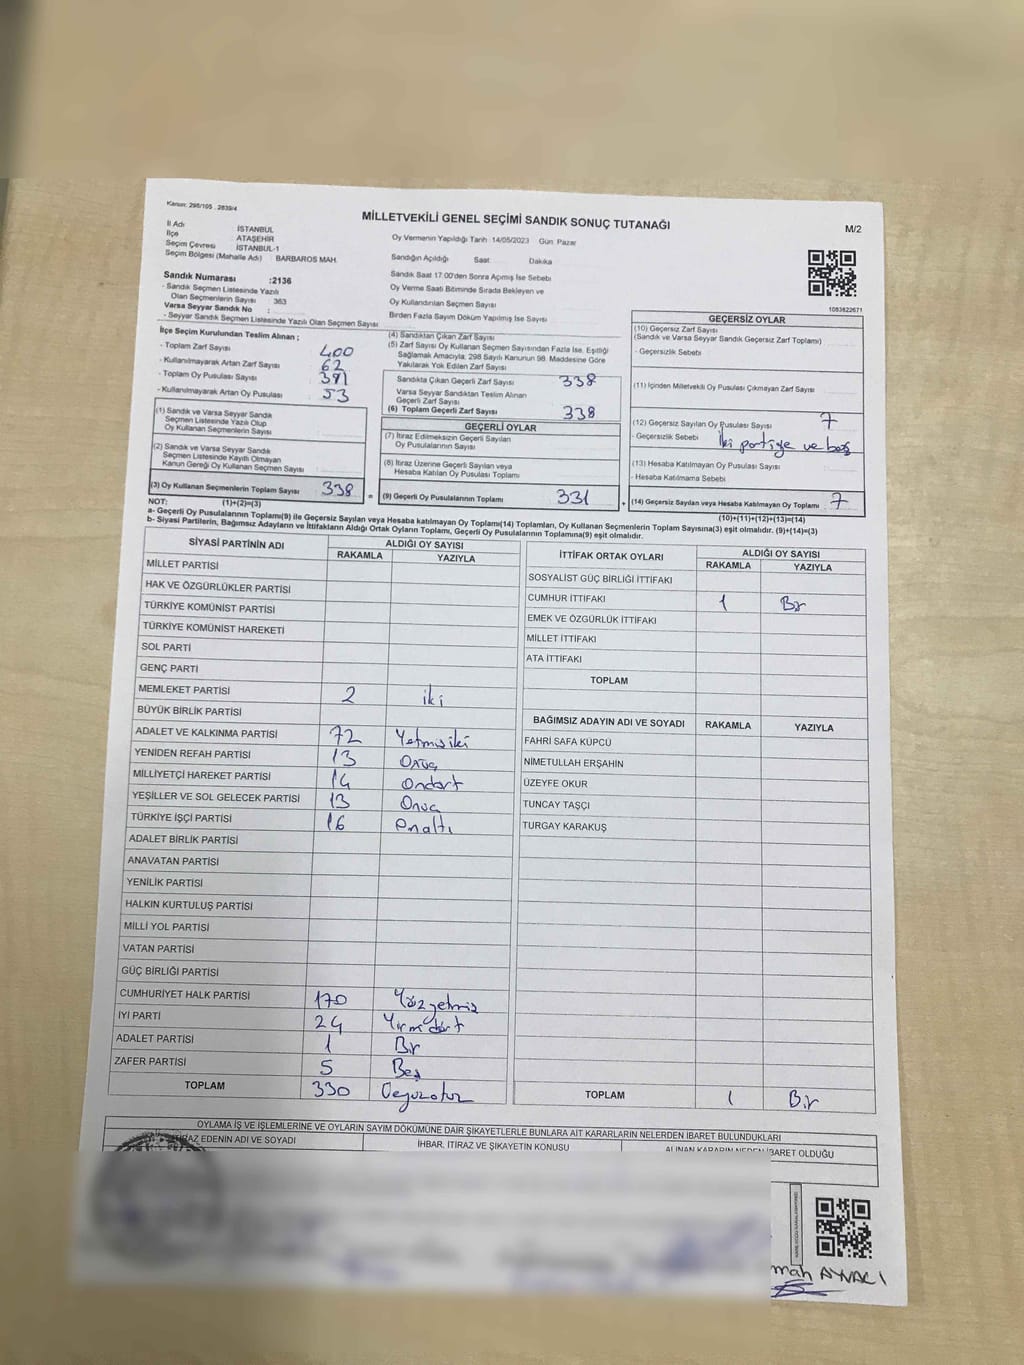 Kanun: 298/105 , 2839/4
MİLLETVEKİLİ GENEL SEÇİMİ SANDIK SONUÇ TUTANAĞI
M/2
İl Adı İSTANBUL
İlçe ATAŞEHİR
Seçim Çevresi İSTANBUL-1
Seçim Bölgesi (Mahalle Adı) BARBAROS MAH.
Oy Vermenin Yapıldığı Tarih 14/05/2023 Gün Pazar
Sandığın Açıldığı Saat Dakika
Sandık Saat 17.00'den Sonra Açılmış İse Sebebi
Oy Verme Saati Bitiminde Sırada Bekleyen ve
Oy Kullandırılan Seçmen Sayısı
Birden Fazla Sayım Döküm Yapılmış İse Sayısı
1083822671
Sandık Numarası :2136
- Sandık Seçmen Listesinde Yazılı
Olan Seçmenlerin Sayısı : 363
Varsa Seyyar Sandık No :
- Seyyar Sandık Seçmen Listesinde Yazılı Olan Seçmen Sayısı
İlçe Seçim Kurulundan Teslim Alınan ;
- Toplam Zarf Sayısı 400
- Kullanılmayarak Artan Zarf Sayısı 62
- Toplam Oy Pusulası Sayısı 391
- Kullanılmayarak Artan Oy Pusulası 53
(1) Sandık ve Varsa Seyyar Sandık
Seçmen Listesinde Yazılı Olup
Oy Kullanan Seçmenlerin Sayısı
(2) Sandık ve Varsa Seyyar Sandık
Seçmen Listesinde Kayıtlı Olmayan
Kanun Gereği Oy Kullanan Seçmen Sayısı
(3) Oy Kullanan Seçmenlerin Toplam Sayısı 338
(1)+(2)=(3)
(4) Sandıktan Çıkan Zarf Sayısı
(5) Zarf Sayısı Oy Kullanan Seçmen Sayısından Fazla İse, Eşitliği
Sağlamak Amacıyla; 298 Sayılı Kanunun 98. Maddesine Göre
Yakılarak Yok Edilen Zarf Sayısı
Sandıkta Çıkan Geçerli Zarf Sayısı 338
Varsa Seyyar Sandıktan Teslim Alınan
Geçerli Zarf Sayısı
(6) Toplam Geçerli Zarf Sayısı 338
GEÇERLİ OYLAR
(7) İtiraz Edilmeksizin Geçerli Sayılan
Oy Pusulalarının Sayısı
(8) İtiraz Üzerine Geçerli Sayılan veya
Hesaba Katılan Oy Pusulası Toplamı
= (9) Geçerli Oy Pusulalarının Toplamı 331
GEÇERSİZ OYLAR
(10) Geçersiz Zarf Sayısı
(Sandık ve Varsa Seyyar Sandık Geçersiz Zarf Toplamı)
- Geçersizlik Sebebi
(11) İçinden Milletvekili Oy Pusulası Çıkmayan Zarf Sayısı
(12) Geçersiz Sayılan Oy Pusulası Sayısı 7
- Geçersizlik Sebebi İki partiye ve boş
(13) Hesaba Katılmayan Oy Pusulası Sayısı
- Hesaba Katılmama Sebebi
+ (14) Geçersiz Sayılan veya Hesaba Katılmayan Oy Toplamı 7
(10)+(11)+(12)+(13)=(14)
NOT:
a- Geçerli Oy Pusulalarının Toplamı(9) ile Geçersiz Sayılan veya Hesaba katılmayan Oy Toplamı(14) Toplamları, Oy Kullanan Seçmenlerin Toplam Sayısına(3) eşit olmalıdır. (9)+(14)=(3)
b- Siyasi Partilerin, Bağımsız Adayların ve İttifakların Aldığı Ortak Oyların Toplamı, Geçerli Oy Pusulalarının Toplamına(9) eşit olmalıdır.
SİYASİ PARTİNİN ADI ALDIĞI OY SAYISI
RAKAMLA YAZIYLA
MİLLET PARTİSİ
HAK VE ÖZGÜRLÜKLER PARTİSİ
TÜRKİYE KOMÜNİST PARTİSİ
TÜRKİYE KOMÜNİST HAREKETİ
SOL PARTİ
GENÇ PARTİ
MEMLEKET PARTİSİ 2 iki
BÜYÜK BİRLİK PARTİSİ
ADALET VE KALKINMA PARTİSİ 72 Yetmisiki
YENİDEN REFAH PARTİSİ 13 Onüç
MİLLİYETÇİ HAREKET PARTİSİ 14 Ondört
YEŞİLLER VE SOL GELECEK PARTİSİ 13 Onuç
TÜRKİYE İŞÇİ PARTİSİ 16 Onaltı
ADALET BİRLİK PARTİSİ
ANAVATAN PARTİSİ
YENİLİK PARTİSİ
HALKIN KURTULUŞ PARTİSİ
MİLLİ YOL PARTİSİ
VATAN PARTİSİ
GÜÇ BİRLİĞİ PARTİSİ
CUMHURİYET HALK PARTİSİ 170 Yüzyetmiş
İYİ PARTİ 24 Yirmidört
ADALET PARTİSİ 1 Bir
ZAFER PARTİSİ 5 Beş
TOPLAM 330 Üçyüzotuz
İTTİFAK ORTAK OYLARI ALDIĞI OY SAYISI
RAKAMLA YAZIYLA
SOSYALİST GÜÇ BİRLİĞİ İTTİFAKI
CUMHUR İTTİFAKI 1 Bir
EMEK VE ÖZGÜRLÜK İTTİFAKI
MİLLET İTTİFAKI
ATA İTTİFAKI
TOPLAM
BAĞIMSIZ ADAYIN ADI VE SOYADI RAKAMLA YAZIYLA
FAHRİ SAFA KÜPCÜ
NİMETULLAH ERŞAHİN
ÜZEYFE OKUR
TUNCAY TAŞÇI
TURGAY KARAKUŞ
TOPLAM 1 Bir
OYLAMA İŞ VE İŞLEMLERİNE VE OYLARIN SAYIM DÖKÜMÜNE DAİR ŞİKAYETLERLE BUNLARA AİT KARARLARIN NELERDEN İBARET BULUNDUKLARI
İTİRAZ EDENİN ADI VE SOYADI İHBAR, İTİRAZ VE ŞİKAYETİN KONUSU ALINAN KARARIN NEDEN İBARET OLDUĞU
mah AYVACI